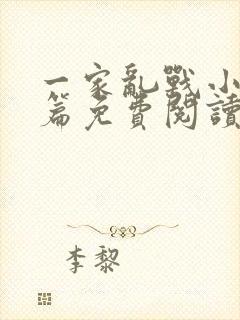 一家亂戰小
篇免費閱讀
李黎